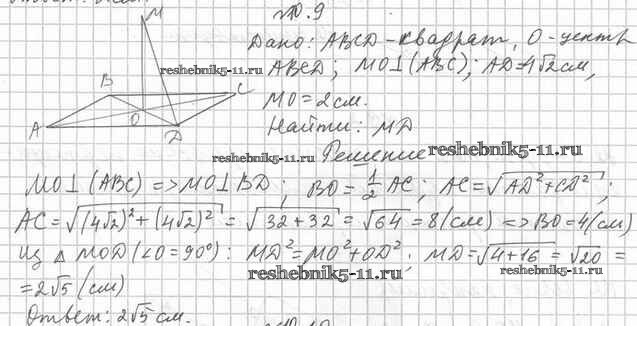 №10.9
M
Дано: ABCD - квадрат, O - центр
ABCD; MO⊥(ABC); AD=4√2см,
MO=2см.
Найти: MD
B
C
A
O
D
reshebnik5-11.ru
reshebnik5-11.ru
Решение
reshebnik5-11.ru
MO⊥(ABC) => MO⊥BD; BO=1/2 AC; AC=√(AD²+CD²);
AC=√((4√2)²+(4√2)²)=√(32+32)=√64=8(см) => BO=4(см)
из △MOD (∠O=90°): MD²=MO²+OD²; MD=√(4+16)=√20=
reshebnik5-11.ru
reshebnik5-11.ru
=2√5(см)
Ответ: 2√5см.